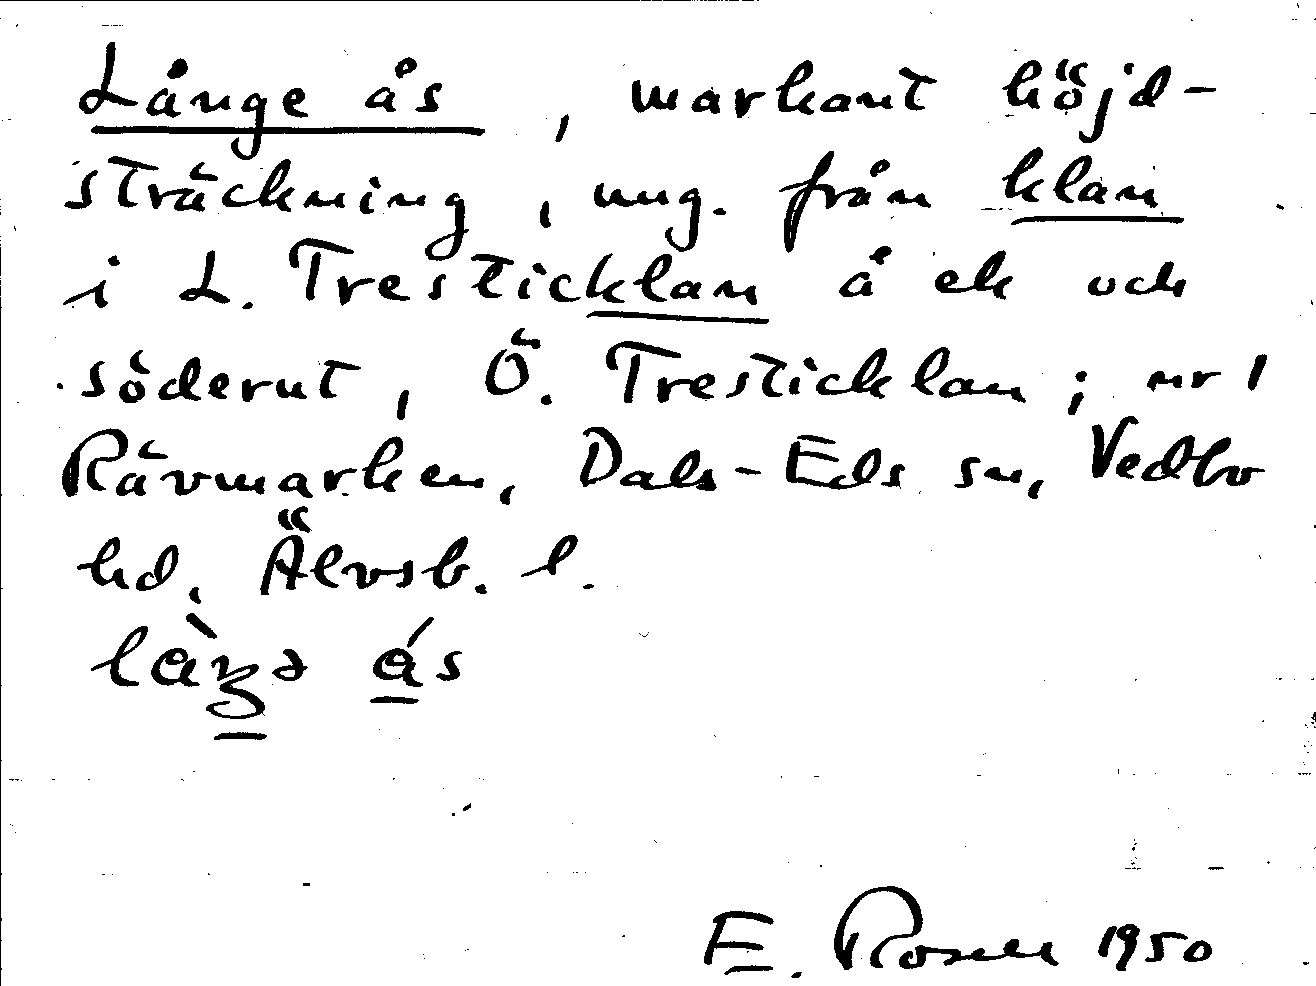 Långe ås, markant höjd-
sträckning, ung. från klan
i L. Tresticklan å ek och
söderut, Ö. Tresticklan; nr 1
Rävmarken, Dals-Eds sn, Vedbo
hd, Älvsb. l.
E. Rosell 1950